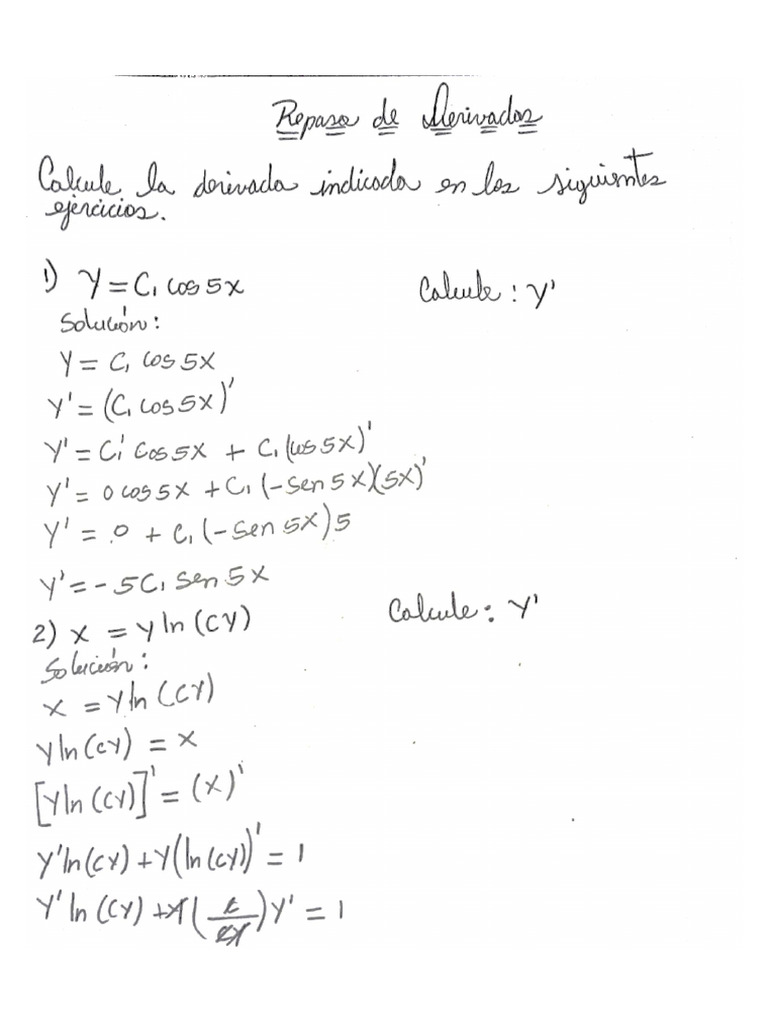 Repaso de Derivadas
Calcule la derivada indicada en los siguientes
ejercicios.
1) y = C₁ cos 5x Calcule: y'
Solución:
y = C₁ cos 5x
y' = (C₁ cos 5x)'
y' = C₁' cos 5x + C₁ (cos 5x)'
y' = 0 cos 5x + C₁ (-sen 5x)(5x)'
y' = 0 + C₁ (-sen 5x) 5
y' = -5C₁ sen 5x
2) x = y ln (cy) Calcule: y'
Solución:
x = y ln (cy)
y ln (cy) = x
[y ln (cy)]' = (x)'
y' ln (cy) + y (ln (cy))' = 1
y' ln (cy) + y (c/cy) y' = 1